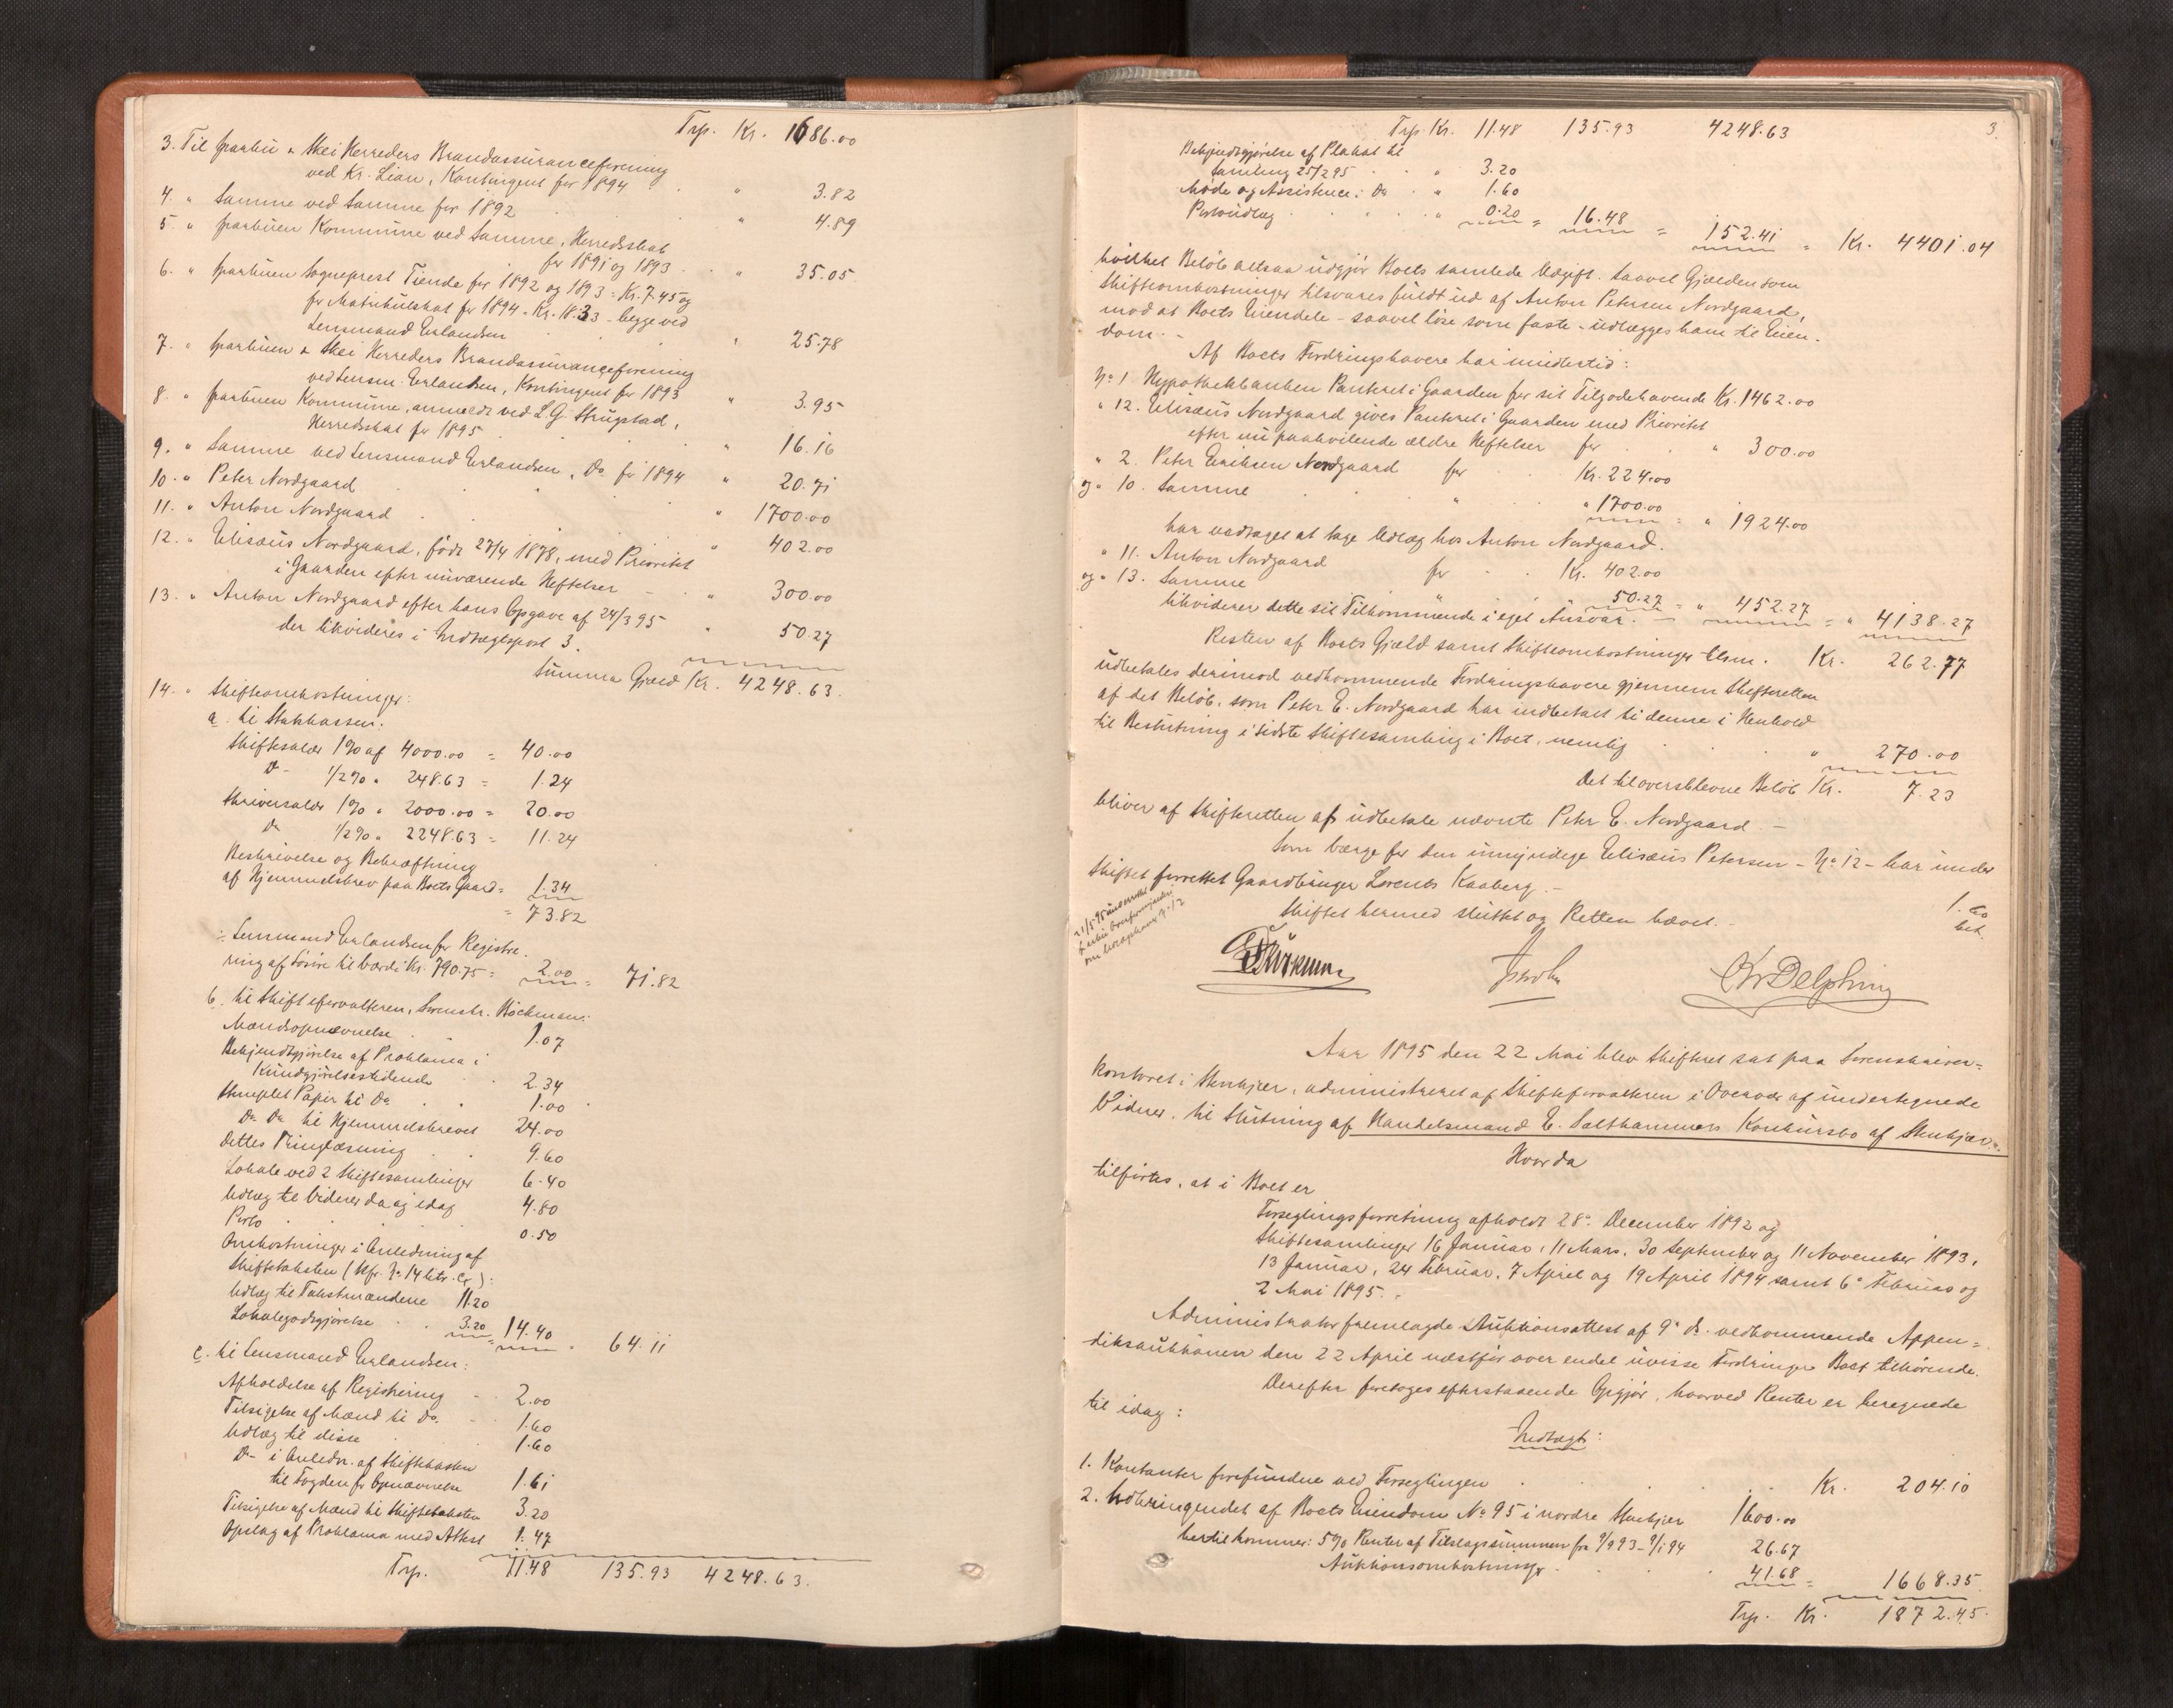 Trp. Kr. 1686.00
3. Til Sparbu & Skei Herreders Brandassuranceforening
ved Kr. Lian, Kontingent for 1894 " 3.82
4. " Samme ved Samme for 1892 " 4.89
5. " Sparbuen Kommune ved Samme, Herredsskat
for 1891 og 1893 " 35.05
6. " Sparbuen Sogneprest Tiende for 1892 og 1893 = Kr. 7.45 og
for Matrikulskat for 1894 = Kr. 18.33 - begge ved
Lensmand Erlandsen " 25.78
7. " Sparbuen & Skei Herreders Brandassuranceforening
ved Lensm. Erlandsen, Kontingent for 1893 " 3.95
8. " Sparbuen Kommune, anmeldt ved L. G. Strugstad,
Herredsskat for 1895 " 16.16
9. " Samme ved Lensmand Erlandsen, Do for 1894 " 20.71
10. " Peter Nordgaard " 1700.00
11. " Anton Nordgaard " 402.00
12. " Elisæus Nordgaard, född 27/4 1878, med Prioritet
i Gaarden efter nuværende Heftelser " 300.00
13. " Anton Nordgaard efter hans Opgave af 24/3 95
der likvideres i Indtægtspost 3. " 50.27
Summa Gjæld Kr. 4248.63.
14. " Skifteomkostninger:
a. til Statskassen:
Skiftesalær 1% af 4000.00 = 40.00
Do 1/2% " 248.63 = 1.24
Skriversalær 1% " 2000.00 = 20.00
Do 1/2% " 2248.63 = 11.24
Beskrivelse og Bekræftning
af Hjemmelsbrev paa Boets Gaard = 1.34
= 73.82
÷ Lensmand Erlandsen for Registre-
ring af Løsøre til værdi Kr. 790.75 = 2.00 = 71.82
b. til Skifteforvalteren, Sorenskr. Böckman:
Mændsopnævnelse 1.07
Bekjendtgjörelse af Proklama i
Kundgjörelsestidende 2.34
Stemplet Papir til Do 1.00
Do Do til Hjemmelsbrevet 24.00
Dettes Tinglæsning 9.60
Lokale ved 2 Skiftesamlinger 6.40
Udlæg til Vidner da og idag 4.80
Porto 0.50
Omkostninger i Anledning af
Skiftetaksten
Udlæg til Takstmændene 11.20
Lokalegodtgjörelse 3.20 = 14.40 = 64.11
c. til Lensmand Erlandsen:
Afholdelse af Registrering 2.00
Tilsigelse af Mænd til Do. 1.60
Udlæg til disse 1.60
Do i Anledn. af Skiftetaksten
til Fogden for Opnævnelse 1.61
Tilsigelse af Mænd til Skiftetaksten 3.20
Opslag af Proklama med Attest 1.47
Trp. 11.48 135.93 4248.63.
3.
Trp. Kr. 11.48 135.93 4248.63
Bekjendtgjörelse af Plakat til
Samling 25/2 95 " 3.20
Møde og Assistence: Do " 1.60
Portoudlæg " 0.20 = 16.48 = 152.41 = Kr. 4401.04
hvilket Belöb altsaa udgjör Boets samlede Udgift. Saavel Gjælden som
Skifteomkostninger tilsvares fuldt ud af Anton Petersen Nordgaard,
mod at Boets Eiendele - saavel löse som faste - udlægges ham til Eien-
dom. -
Af Boets Fordringshavere har imidlertid:
No 1. Hypothekbanken Panteret i Gaarden for sit Tilgodehavende Kr. 1462.00
" 12. Elisæus Nordgaard gives Panteret i Gaarden med Prioritet
efter nu paahvilende ældre Heftelser for " 300.00
" 2. Peter Eriksen Nordgaard for Kr. 224.00
og " 10. Samme " " 1700.00 = " 1924.00
har vedtaget at tage Udlæg hos Anton Nordgaard.
" 11. Anton Nordgaard for Kr. 402.00
og " 13. Samme " 50.27 = " 452.27
likviderer dette sit Tilkommende i eget Ansvar. = " 4138.27
Resten af Boets Gjæld samt Skifteomkostninger tilsm. Kr. 262.77
udbetales derimod vedkommende Fordringshavere gjennem Skifteretten
af det Belöb, som Peter E. Nordgaard har indbetalt til denne i Henhold
til Beslutning i sidste Skiftesamling i Boet, nemlig " 270.00
Det tiloversblevne Belöb Kr. 7.23
bliver af Skifteretten at udbetale nævnte Peter E. Nordgaard. -
Som værge for den umyndige Elisæus Petersen - No 12 - har under
Skiftet forrettet Gaardbruger Lorents Kaaberg. -
Skiftet hermed sluttet og Retten hævet. -
1.60
bet.
KrDelphin
Aar 1895 den 22 Mai blev Skifteret sat paa Sorenskriver-
kontoret i Stenkjær, administreret af Skifteforvalteren i Overvær af undertegnede
Vidner, til Slutning af Handelsmand E. Salthammers Konkursbo af Stenkjær.
Hvorda
tilförtes, at i Boet er
Forseglingsforretning afholdt 28de December 1892 og
Skiftesamlinger 16 Januar, 11 Mars, 30 September og 11 November 1893,
13 Januar, 24 Februar, 7 April og 19 April 1894 samt 6te Februar og
2 Mai 1895. -
Administrator fremlagde Auktionsattest af 9de ds. vedkommende Appen-
diksauktionen den 22 April næstför over endel uvisse Fordringer Boet tilhörende.
Derefter foretoges efterstaaende Opgjör, hvorved Renter er beregnede
til idag:
Indtægt:
1. Kontanter forefundne ved Forseglingen Kr. 204.10
2. Indbringendet af Boets Eiendom No 95 i nordre Stenkjær 1600.00
hertil kommer: 5% Renter af Tilslagssummen fra 9/9 93 - 9/1 94 26.67
Auktionsomkostninger 41.68 = 1668.35
Trp. Kr. 1872.45.